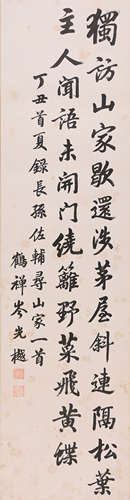 獨訪山家歇還涉茅屋斜連隔松葉
主人聞語未開門繞籬野菜飛黃蝶
丁丑首夏錄長孫佐輔尋山家一首
鶴禪岑光樾